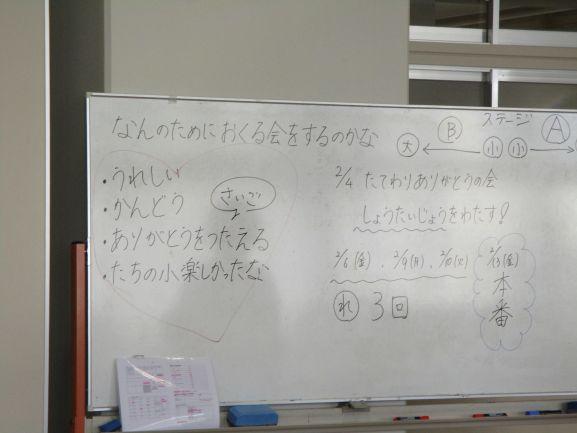 なんのためにおくる会をするのかな
・うれしい
・かんどう
さいご
・ありがとうをつたえる
・たちの小楽しかったな
ステージ
Ⓑ Ⓐ
大 小 小
2/4 たてわりありがとうの会
しょうたいじょうをわたす!
2/6(金)、2/9(月)、2/10(火)
れ 3回
2/13(金)
本
番